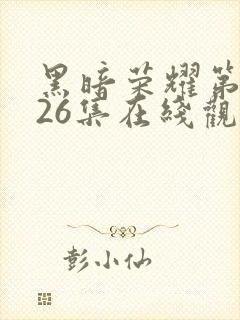 黑暗荣耀第
26集在线觀
彭小仙